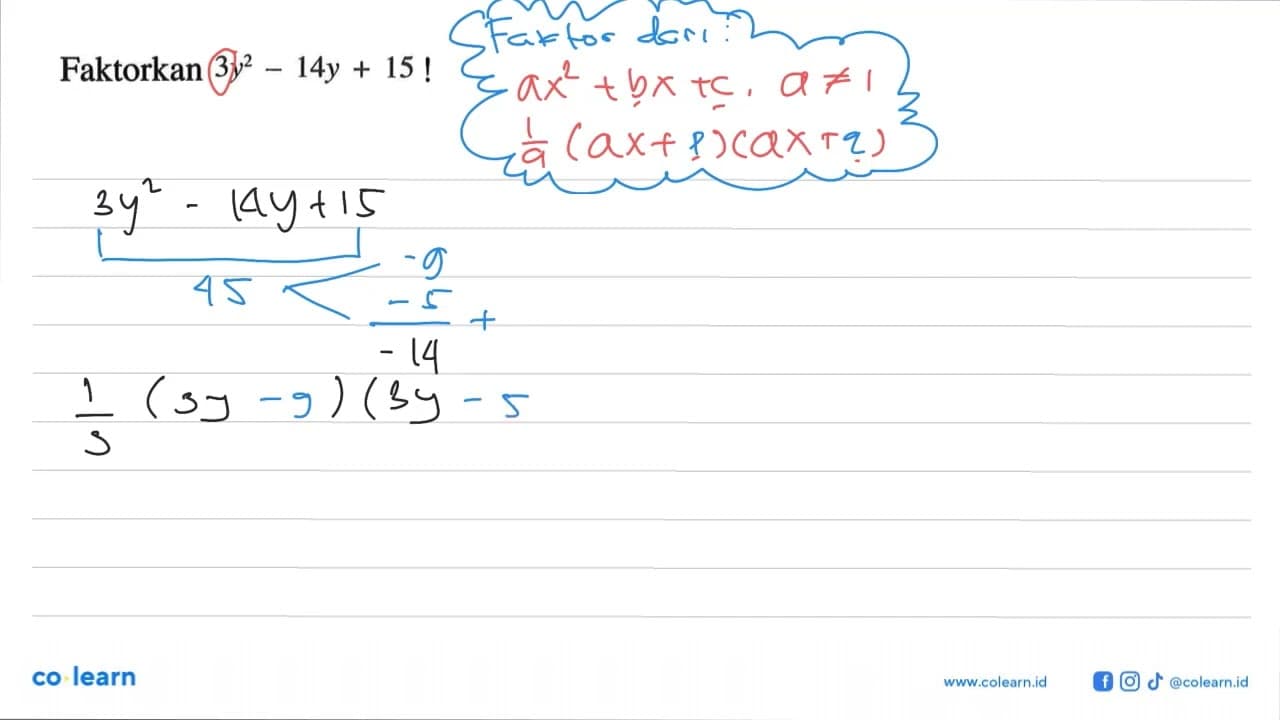 Faktorkan 3y² – 14y + 15 !
Faktor dari :
ax² + bx + c, a ≠ 1
1/a (ax + p)(ax + q)
3y² - 14y + 15
45
-9
-5
+
-14
1/3 (3y - 9)(3y - 5
co·learn
www.colearn.id
@colearn.id